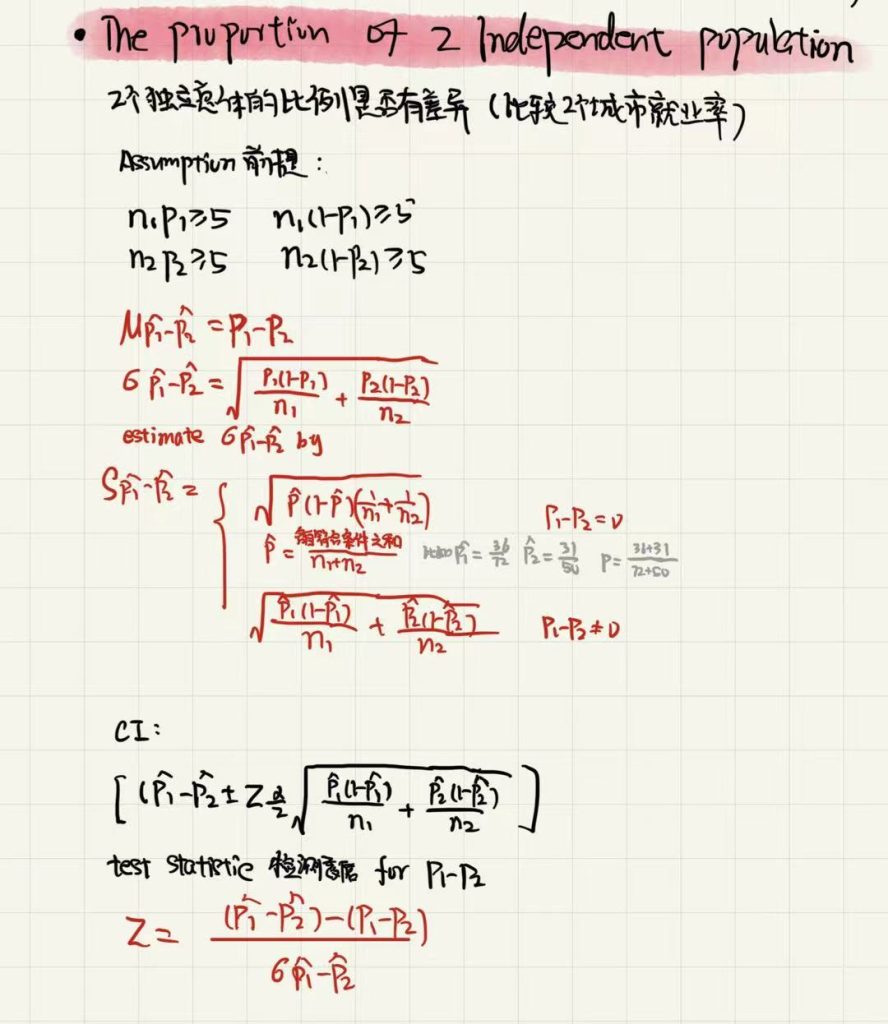 • The proportion of 2 Independent population
2个独立总体的比例是否有差异 (比较2个城市就业率)
Assumption 前提:
n₁p₁≥5 n₁(1-p₁)≥5
n₂p₂≥5 n₂(1-p₂)≥5
μp̂₁-p̂₂ = p₁-p₂
σp̂₁-p̂₂ = √(p₁(1-p₁)/n₁ + p₂(1-p₂)/n₂)
estimate σp̂₁-p̂₂ by
Sp̂₁-p̂₂ = { √(p̂(1-p̂)(1/n₁+1/n₂)) p₁-p₂=0
p̂ = 符合条件之和/(n₁+n₂) 比如 p̂₁=36/72 p̂₂=31/50 p=(36+31)/(72+50)
√(p̂₁(1-p̂₁)/n₁ + p̂₂(1-p̂₂)/n₂) p₁-p₂≠0
CI:
[(p̂₁-p̂₂ ± Zα/2 √(p̂₁(1-p̂₁)/n₁ + p̂₂(1-p̂₂)/n₂)]
test statistic 检测 for p₁-p₂
Z = ((p̂₁-p̂₂)-(p₁-p₂))/σp̂₁-p̂₂